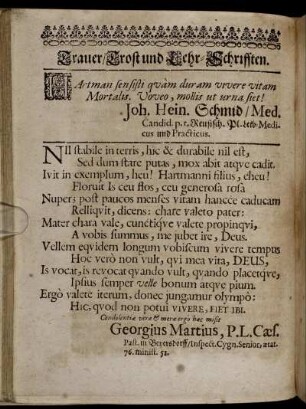 Trauer/Trost und Lehr-Schrifften.
HArtman sensisti quàm duram vivere vitam
Mortalis. Voveo, mollis ut urna siet!
Joh. Hein. Schmid/ Med.
Candid. p. t. Reussisch. Pl.
cus und Practicus.
NIl stabile in terris, hic & durabile nil est,
Sed dum stare putas, mox abit atqve cadit.
Ivit in exemplum, heu! Hartmanni filius, eheu!
Floruit Is ceu flos, ceu generosa rosa
Nuper: post paucos menses vitam hancce caducam
Relliqvit, dicens: chare valeto pater:
Mater chara vale, cunctiqve valete propinqvi,
A vobis summus, me jubet ire, Deus.
Vellem eqvidem longum vobiscum vivere tempus
Hoc verò non vult, qvi mea vita, DEUS,
Is vocat, is revocat qvando vult, qvando placetqve,
Ipsius semper velle bonum atqve pium.
Ergò valete iterum, donec jungamur olympô:
Hic, qvod non potui vivere, FIET IBI.
Condolentiæ veræ & meræ ergò hæc misit
Georgius Martius, P. L. Cæs.
Past. in /Inspect. Cygn. Senior, ætat.
76. minist. 51.